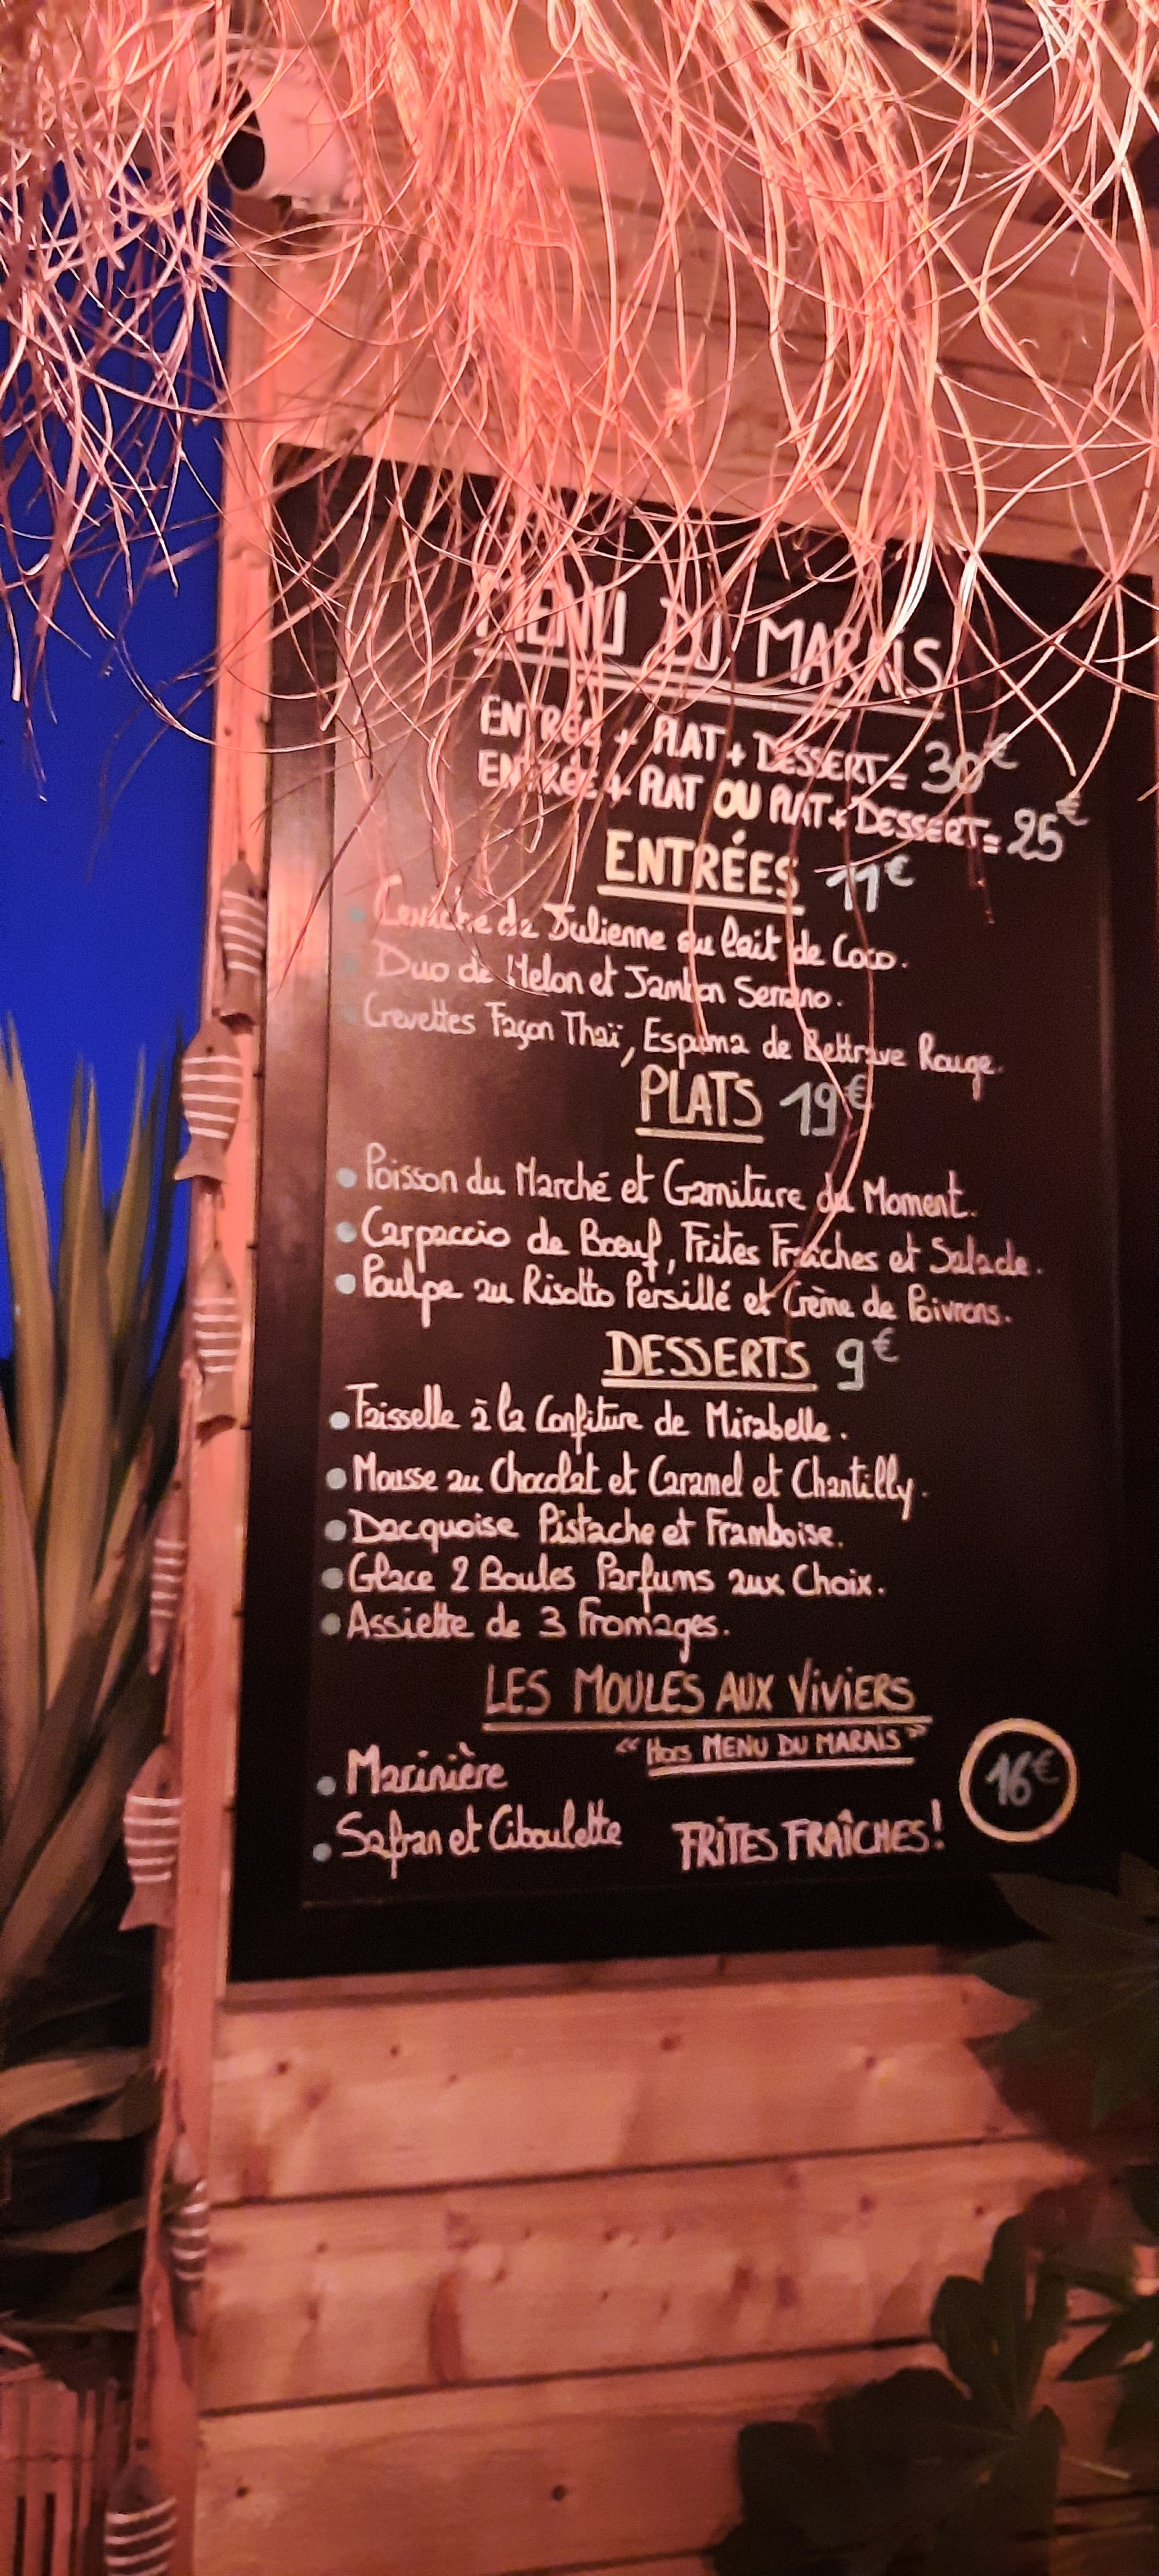 MENU DU MARAIS
ENTRÉE + PLAT + DESSERT = 30€
ENTRÉE + PLAT OU PLAT + DESSERT = 25€
ENTRÉES 11€
Ceviche de Julienne au lait de Coco.
Duo de Melon et Jambon Serrano.
Crevettes Façon Thaï, Espuma de Bettrave Rouge.
PLATS 19€
• Poisson du Marché et Garniture du Moment.
• Carpaccio de Bœuf, Frites Fraîches et Salade.
• Poulpe au Risotto Persillé et Crème de Poivrons.
DESSERTS 9€
• Faisselle à la Confiture de Mirabelle.
• Mousse au Chocolat et Caramel et Chantilly.
• Dacquoise Pistache et Framboise.
• Glace 2 Boules Parfums aux Choix.
• Assiette de 3 Fromages.
LES MOULES AUX VIVIERS
"Hors MENU DU MARAIS"
• Marinière
16€
• Safran et Ciboulette
FRITES FRAÎCHES!